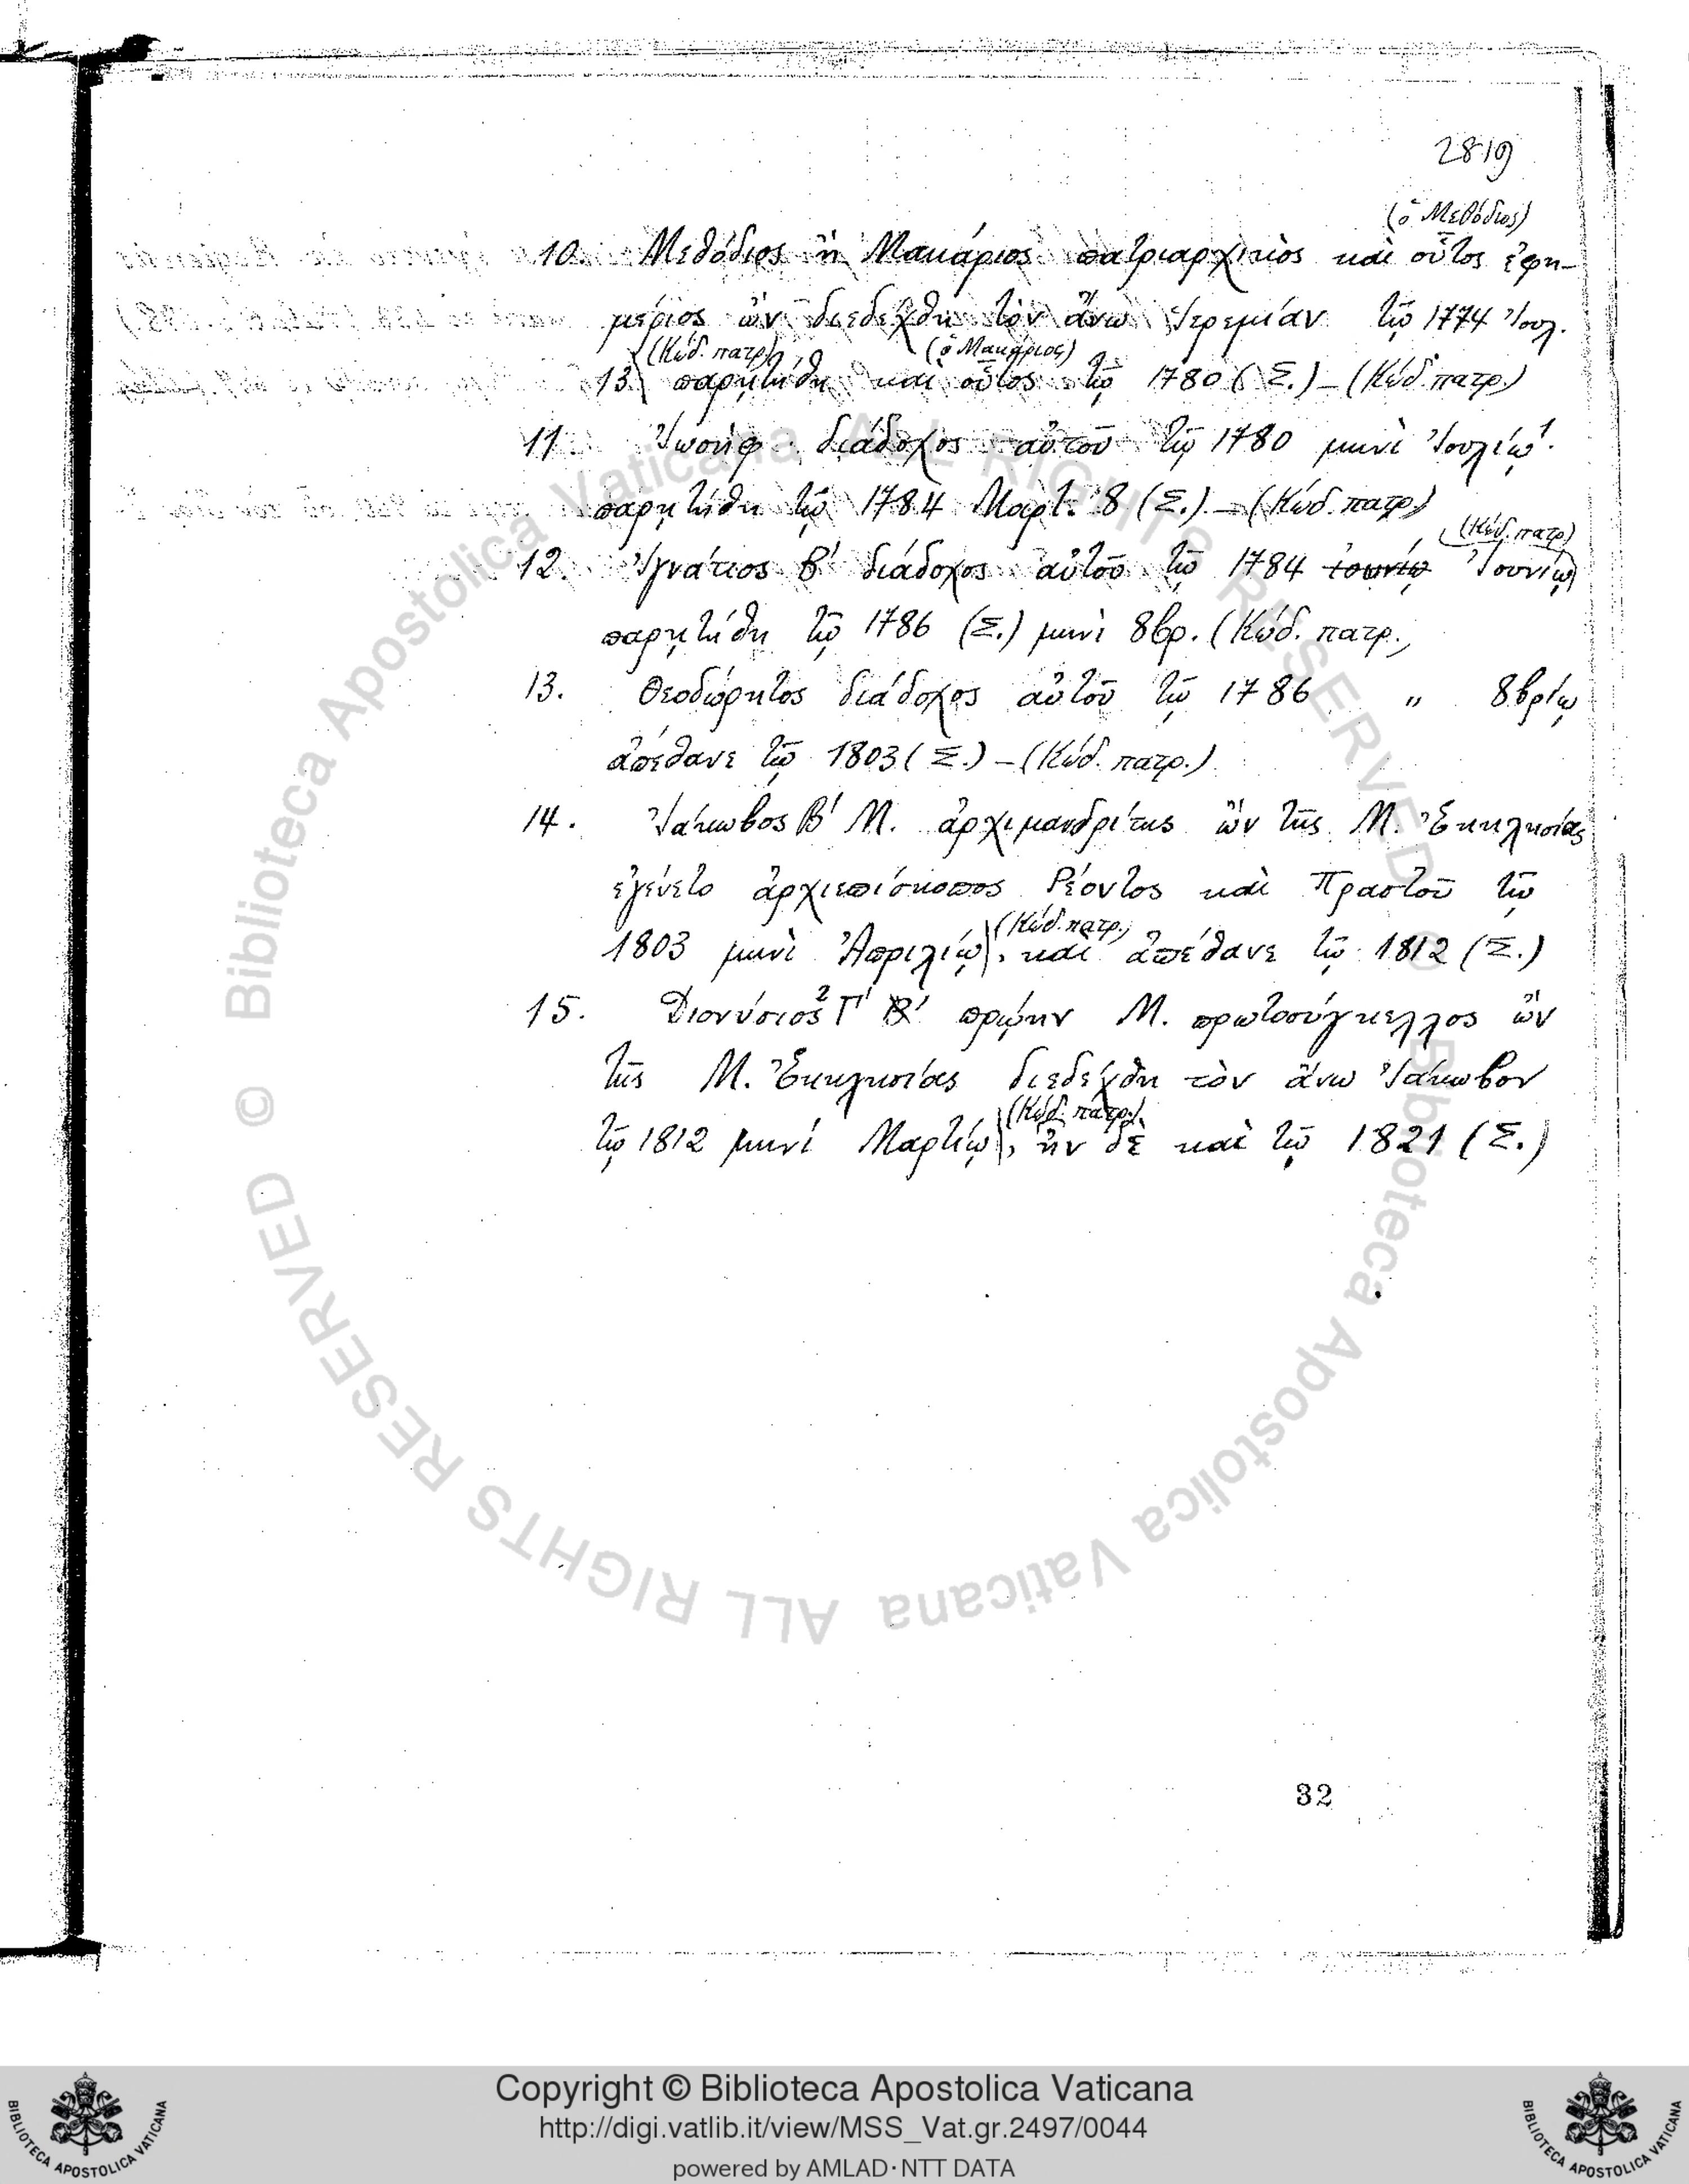 2819
(ὁ Μεθόδιος)
10. Μεθόδιος ἢ Μακάριος πατριαρχικὸς καὶ οὗτος ἐφη-
μέριος ὢν διεδέχθη τὸν ἄνω Ἱερεμίαν τῷ 1774 Ἰουλ.
(Κώδ. πατρ.) (ὁ Μακάριος)
13 παρῃτήθη καὶ οὗτος τῷ 1780 (Σ.) – (Κώδ. πατρ.)
11. Ἰωσήφ διάδοχος αὐτοῦ τῷ 1780 μηνὶ Ἰουλίῳ 1.
παρῃτήθη τῷ 1784 Μαρτ. 8 (Σ.) – (Κώδ. πατρ)
(Κώδ. πατρ)
12. Ἰγνάτιος β' διάδοχος αὐτοῦ τῷ 1784 ἰουνίῳ Ἰουνίῳ
παρῃτήθη τῷ 1786 (Σ.) μηνὶ 8βρ. (Κώδ. πατρ.)
13. Θεοδώρητος διάδοχος αὐτοῦ τῷ 1786 " 8βρίῳ
ἀπέθανε τῷ 1803 (Σ.) – (Κώδ. πατρ.)
14. Ἰάκωβος Β' Μ. ἀρχιμανδρίτης ὢν τῆς Μ. Ἐκκλησίας
ἐγένετο ἀρχιεπίσκοπος Ῥέοντος καὶ Πραστοῦ τῷ
(Κώδ. πατρ.)
1803 μηνὶ Ἀπριλίῳ, καὶ ἀπέθανε τῷ 1812 (Σ.)
15. Διονύσιος 2 Γ' Β' πρῴην Μ. πρωτοσύγκελλος ὢν
τῆς Μ. Ἐκκλησίας διεδέχθη τὸν ἄνω Ἰάκωβον
(Κώδ. πατρ.)
τῷ 1812 μηνί Μαρτίῳ, ἦν δὲ καὶ τῷ 1821 (Σ.)
32
© Biblioteca Apostolica Vaticana ALL RIGHTS RESERVED
© Biblioteca Apostolica Vaticana ALL RIGHTS RESERVED
Copyright © Biblioteca Apostolica Vaticana
http://digi.vatlib.it/view/MSS_Vat.gr.2497/0044
powered by AMLAD·NTT DATA
BIBLIOTECA APOSTOLICA VATICANA
BIBLIOTECA APOSTOLICA VATICANA